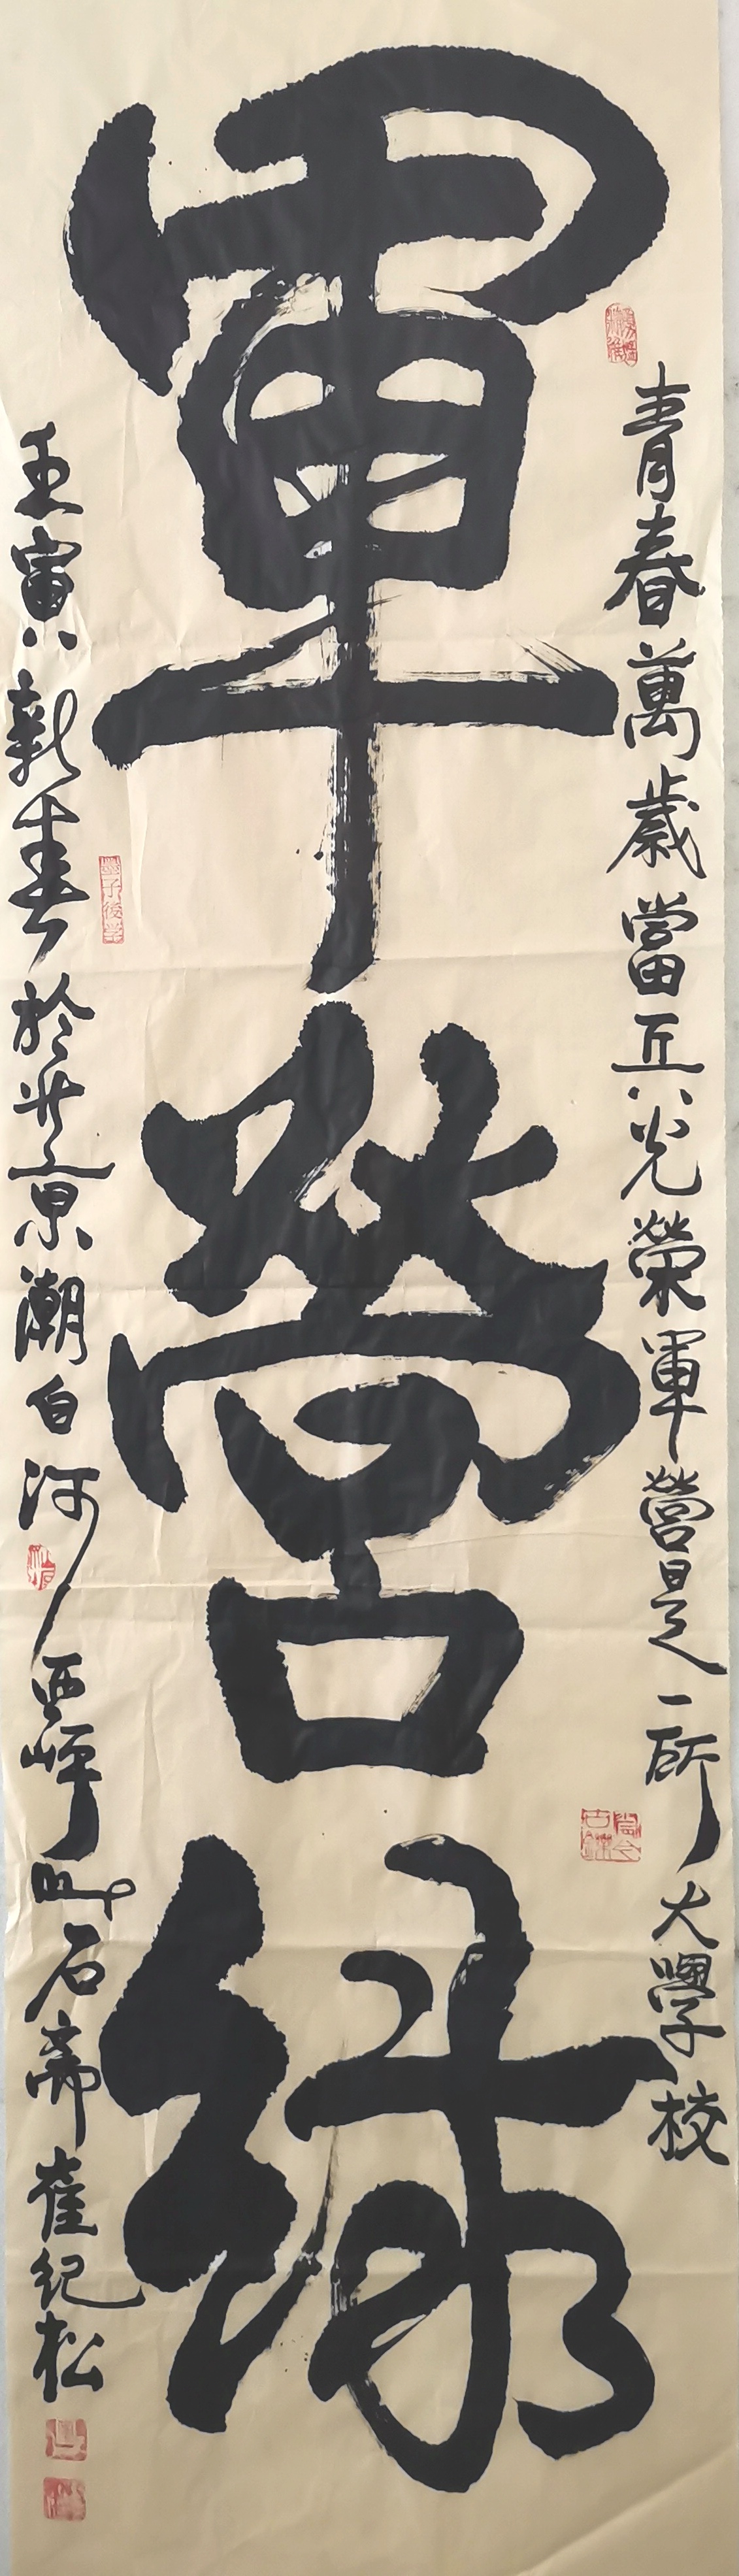 青春萬歲當兵光榮軍營是一所大學校
軍營綠
壬寅新春於北京潮白河西岸石齋崔紀松
墨子後學